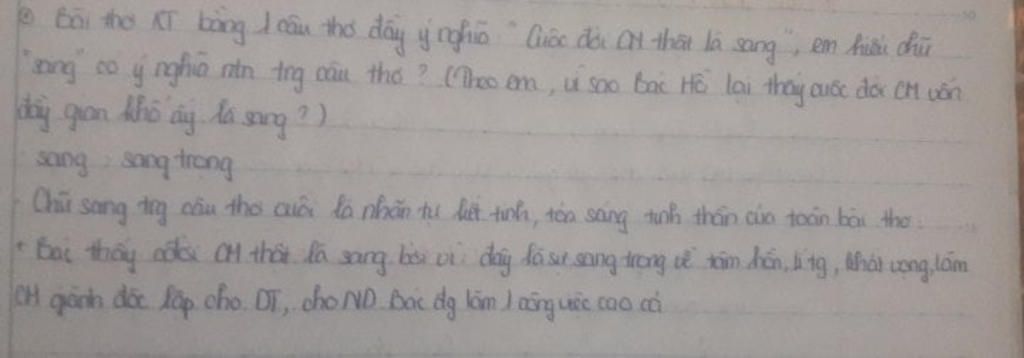 ② Bài thơ KT bằng 1 câu thơ đầy ý nghĩa "Cuộc đời CM thật là sang", em hiểu chữ
"sang" có ý nghĩa ntn trg câu thơ? (Theo em, vì sao Bác Hồ lại thấy cuộc đời CM vốn
đầy gian khổ ấy là sang?)
sang: sang trọng
- Chữ sang trg câu thơ cuối là nhãn tự kết tinh, tỏa sáng tinh thần của toàn bài thơ.
+ Bác thấy cđời CM thật là sang bởi vì: đây là sự sang trọng về tâm hồn, lí tg, khát vọng, làm
CM giành độc lập cho DT, cho ND. Bác đg làm 1 công việc cao cả